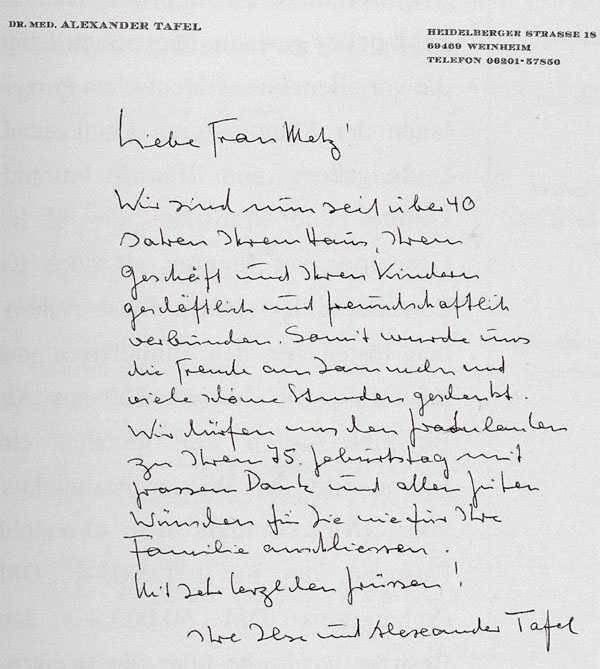 DR. MED. ALEXANDER TAFEL
HEIDELBERGER STRASSE 18
69469 WEINHEIM
TELEFON 06201-57850
Liebe Frau Metz!
Wir sind nun seit über 40
Jahren Ihrem Haus, Ihrem
Geschäft und Ihren Kindern
geschäftlich und freundschaftlich
verbunden. Somit wurde uns
die Freude am Sammeln und
viele schöne Stunden geschenkt.
Wir dürfen uns den Gratulanten
zu Ihrem 75. Geburtstag mit
grossem Dank und allen guten
Wünschen für Sie wie für Ihre
Familie anschliessen.
Mit sehr herzlichen Grüssen!
Ihre Ilse und Alexander Tafel